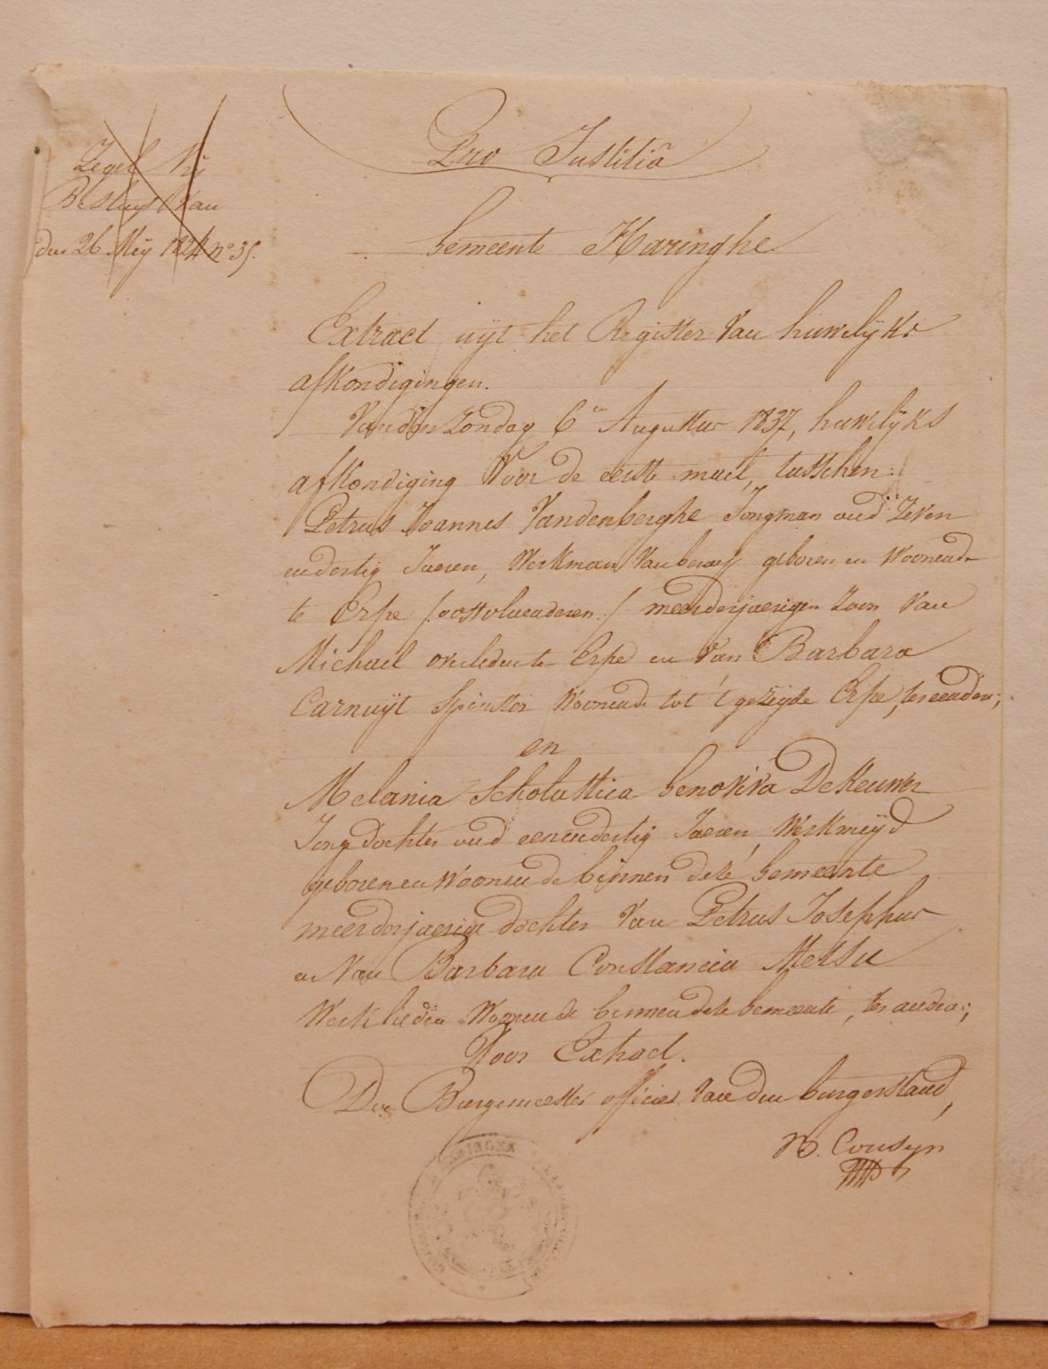 Pro Justitiâ
Zegel Vrij
Besluyt Van
den 26 Mey 1824 n° 35.
Gemeente Haringhe
Extract uijt het Register Van huwelijks
afkondigingen.
Van den Zondag 6en Augustus 1837, huwelijks
afkondiging Voor de eerste mael, tusschen:
Petrus Joannes Vandenberghe Jongman oud Zeven
en dertig Jaeren, Werkman Van beroep geboren en Woonende
te Erpe (oostvlaenderen) meerderjaerigen Zoon Van
Michael overleden te Erpe en Van Barbara
Carnuijt Spinster Woonende tot 't gezeijde Erpe, ter eenden;
en
Melania Scholastica Genoviva DeKeuwer
Jong dochter oud eenendertig Jaeren, Werkmeijd
geboren en Woonende binnen deze Gemeente
meerderjaerige dochter Van Petrus Josephus
en Van Barbara Constancia Mersu
Werklieden Woonende binnen deze Gemeente, ter andren;
Voor Extract.
Den Burgemeester officier Van den burgerstand,
Cousyn